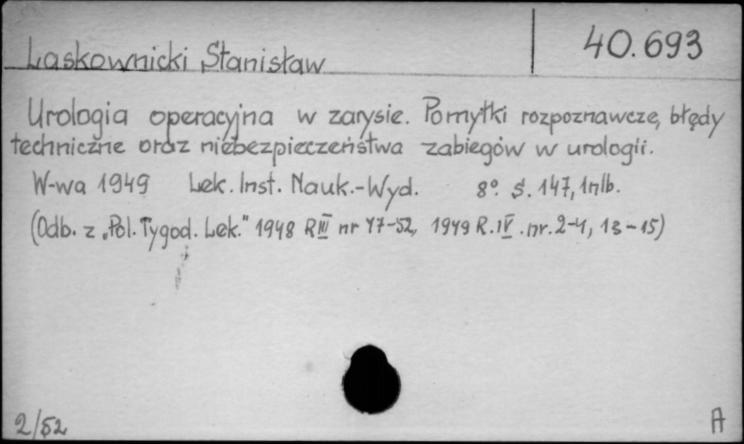 Laskownicki Stanisław
40.693
Urologia operacyjna w zarysie. Pomyłki rozpoznawcze, błędy
techniczne oraz niebezpieczeństwa zabiegów w urologii.
W-wa 1949 Lek. Inst. Nauk.-Wyd. 8° S. 147, 1nlb.
(Odb. z „Pol. Tygod. Lek." 1948 R III nr 47-52, 1949 R. IV. nr. 2-4, 13-15)
2/52
A